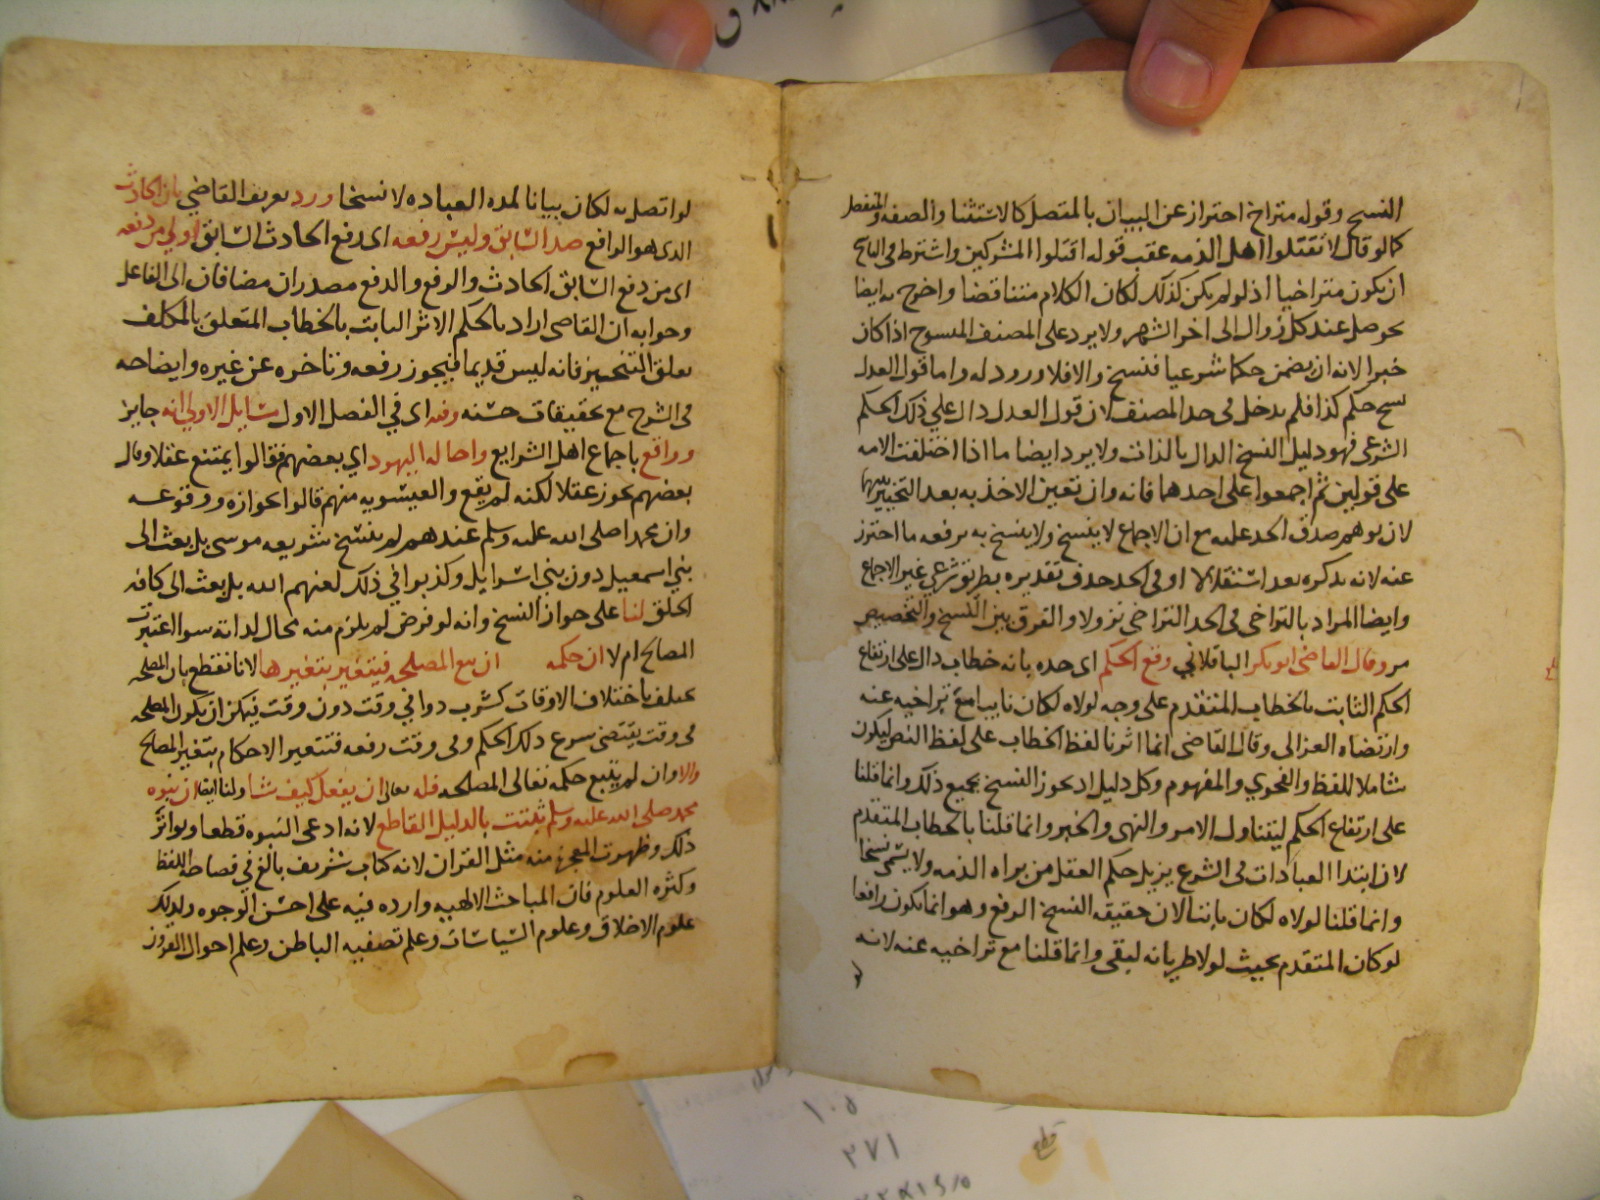 النسخ وقوله متراخ احتراز عن البيان بالمتصل كالاستثنا والصفه والمنفصل
كما لو قال لا تقتلوا اهل الذمه عقب قوله اقتلوا المشركين واشترط في الناسخ
ان يكون متراخيا اذ لو لم يكن كذلك لكان الكلام متناقضا واخرج به ايضا
نحو صل عند كل زوال الى اخر الشهر ولا يرد على المصنف المنسوخ اذا كان
خبرا لانه ان يضمن حكما شرعيا فنسخ والا فلا ورود له واما قول العدل
نسخ حكم كذا فلم يدخل في حد المصنف لان قول العدل دال علي ذلك الحكم
الشرعي فهو دليل النسخ الدال بالذات ولا يرد ايضا ما اذا اختلفت الامه
على قولين ثم اجمعوا على احدهما فانه وان تعين الاخذ به بعد التخيير بينهما
لان يوهم صدق الحد عليه مع ان الاجماع لا ينسخ ولا ينسخ به يرفعه ما احترز
عنه لانه يذكره بعد استقلالا او في الحد حذف تقديره بطريق شرعي غير الاجماع
وايضا المراد بالتراخي في الحد التراخي نزولا والفرق بين النسخ والتخصيص
مر وقال القاضي ابو بكر الباقلاني رفع الحكم اى حده بانه خطاب دال على ارتفاع
الحكم الثابت بالخطاب المتقدم على وجه لولاه لكان ثابتا مع تراخيه عنه
وارتضاه الغزالى وقال القاضي انما اثرنا لفظ الخطاب على لفظ النص ليكون
شاملا للفظ والفحوي والمفهوم وكل دليل اذ يجوز النسخ بجميع ذلك وانما قلنا
على ارتفاع الحكم ليتناول الامر والنهى والخبر وانما قلنا بالخطاب المتقدم
لان ابتدا العبادات في الشرع يزيل حكم العقل من براه الذمه ولا يسمى نسخا
وانما قلنا لولاه لكان ثابتا لان حقيقه النسخ الرفع وهو انما يكون رافعا
لو كان المتقدم بحيث لولا طريانه لبقى وانما قلنا مع تراخيه عنه لانه
لو اتصل به لكان بيانا لمده العباده لا نسخا ورد تعريف القاضي بان الحادث
الذى هو الرافع ضد السابق وليس رفعه اى رفع الحادث السابق اولي من دفعه
اى من دفع السابق الحادث والرفع والدفع مصدران مضافان الى الفاعل
وجوابه ان القاضى اراد بالحكم الاثر الثابت بالخطاب المتعلق بالمكلف
تعلق التنجيز فانه ليس قديما فيجوز رفعه وتاخره عن غيره وايضاحه
فى الشرح مع تحقيقات حسنه وفيه اى في الفصل الاول مسايل الاولي انه جايز
وواقع باجماع اهل الشرايع واحاله اليهود اي بعضهم فقالوا يمتنع عقلا وقال
بعضهم يجوز عقلا لكنه لم يقع والعيسويه منهم قالوا بجوازه ووقوعه
وان محمدا صلى الله عليه وسلم عندهم لم ينسخ شريعه موسى بل بعث الى
بني اسمعيل دون بني اسرايل وكذبوا في ذلك لعنهم الله بل بعث الى كافه
الخلق لنا على جواز النسخ وانه لو فرض لم يلزم منه محال لذاته سوا اعتبرت
المصالح ام لا ان حكمه ان تبع المصلحه فيتغير بتغيرها لانا نقطع بان المصلحه
تختلف باختلاف الاوقات كشرب دوا في وقت دون وقت فيمكن ان يكون المصلحه
في وقت يقتضى شرع ذلك الحكم وفى وقت رفعه فتتغير الاحكام بتغير المصالح
والا وان لم يتبع حكمه تعالى المصلحه فله تعالى ان يفعل كيف شا ولنا ايضا ان نبوه
محمد صلى الله عليه وسلم ثبتت بالدليل القاطع لانه ادعى النبوه قطعا وتواتر
ذلك وظهرت المعجزه منه مثل القران لانه كتاب شريف بالغ في فصاحه اللفظ
وكثره العلوم فان المباحث الالهيه وارده فيه على احسن الوجوه وكذلك
علوم الاخلاق وعلوم السياسات وعلم تصفيه الباطن وعلم احوال القرون
١٠٥
٢٧١